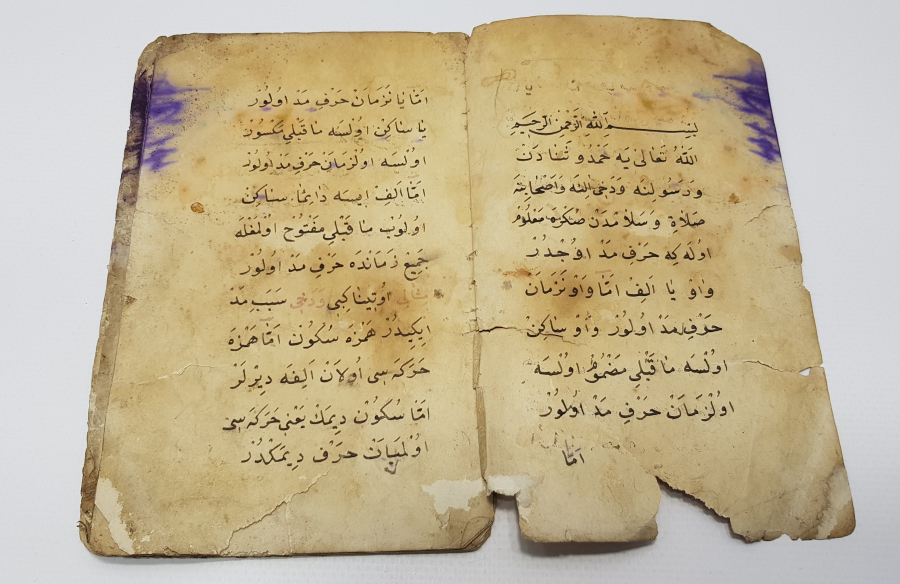 بسم الله الرحمن الرحيم
الله تعالى يه حمدو ثنادن
و رسولنه ودخى اله واصحابنه
صلاة و سلامدن صكره معلوم
اوله كه حرف مد اوجدر
واو يا الف امّا واو نزمان
حرف مد اولور واو ساكن
اولسه ما قبلى مضموم اولسه
اولزمان حرف مد اولور
امّا
امّا يا نزمان حرف مد اولور
يا ساكن اولسه ما قبلى مكسور
اولسه اولزمان حرف مد اولور
امّا الف ايسه دايما ساكن
اولوب ما قبلى مفتوح اولمغله
جميع زمانده حرف مد اولور
مثالى اوتينا كبى ودخى سبب مد
ايكيدر همزه سكون امّا همزه
حركه سى اولان الفه ديرلر
امّا سكون ديمك يعنى حركه سى
اولميان حرف ديمكدر